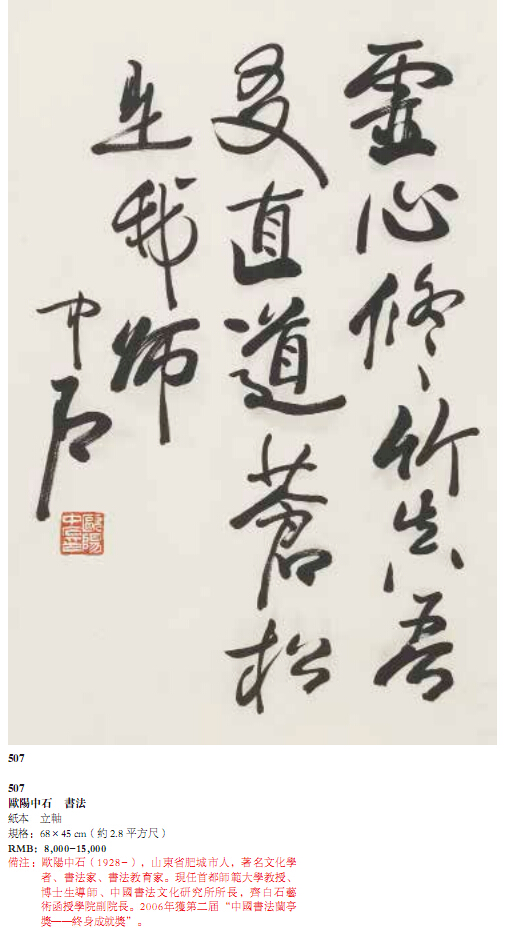 虛心修竹真吾
友直道蒼松
是我師
中石
歐陽
中石
507
507
歐陽中石　書法
紙本　立軸
規格：68×45 cm（約2.8平方尺）
RMB: 8,000-15,000
備注：歐陽中石（1928-），山東省肥城市人，著名文化學
者、書法家、書法教育家。現任首都師範大學教授、
博士生導師、中國書法文化研究所所長，齊白石藝
術函授學院副院長。2006年獲第二届“中國書法蘭亭
獎——終身成就獎”。